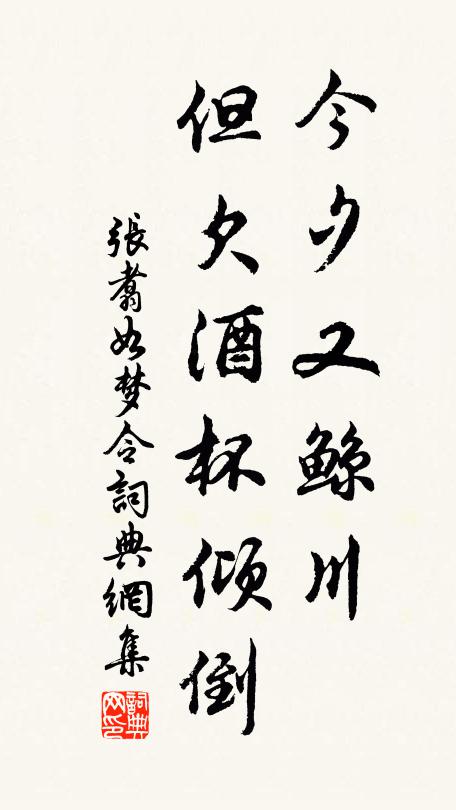 今夕又鲸川
但欠酒杯倾倒
張翥如梦令詞典網集
詞典网印